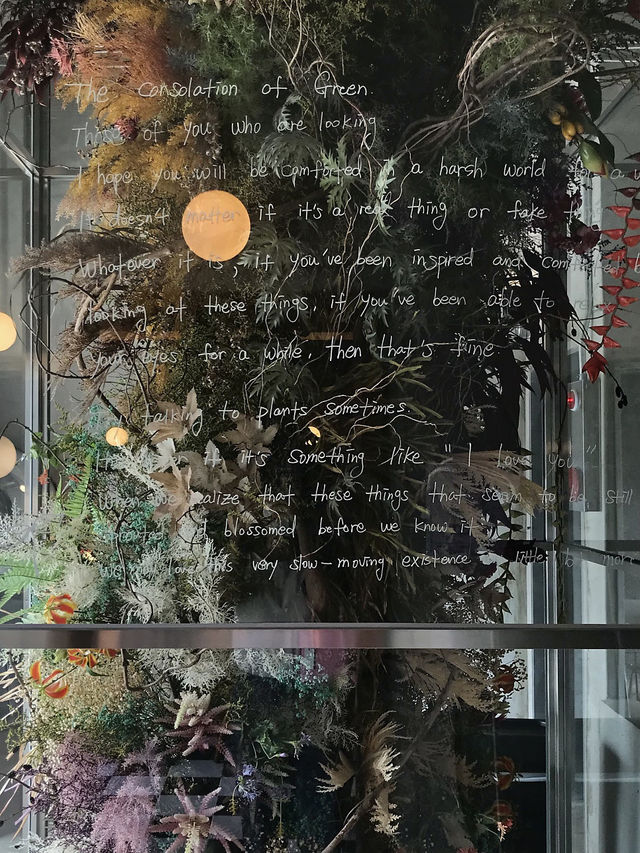 The Consolation of Green.
Those of you who are looking.
I hope you will be comforted in a harsh world for a
It doesn't matter if it's a real thing or fake
Whatever it is, if you've been inspired and comforted
looking at these things, if you've been able to
your eyes for a while, then that's fine
talking to plants sometimes.
it's something like "I love you"
When we realize that these things that seem to be still
blossomed before we know it
love this very slow-moving existence little more